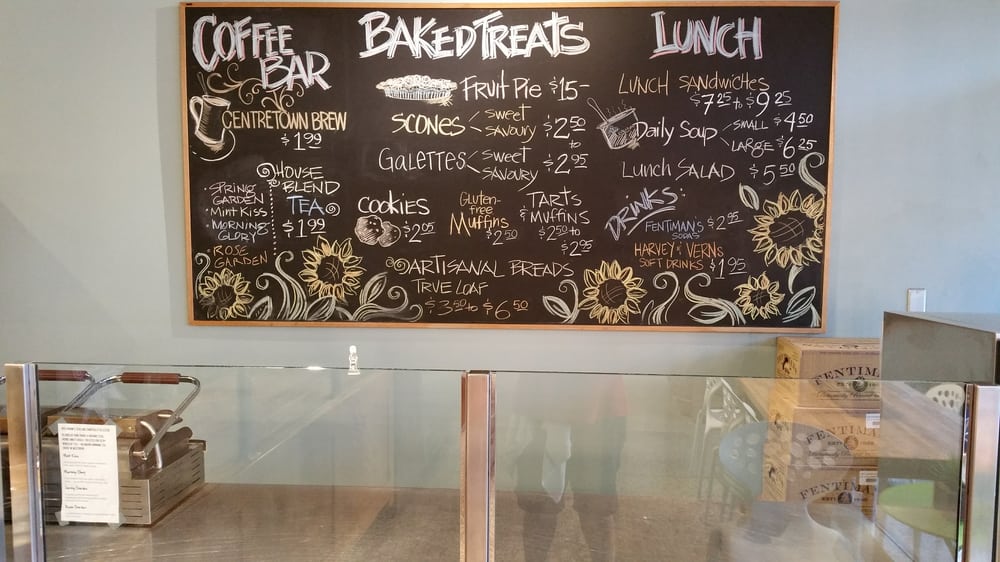 COFFEE
BAR
CENTRETOWN BREW
$1.99
HOUSE
BLEND
TEA
$1.99
• SPRING
GARDEN
• MINT KISS
• MORNING
GLORY
• ROSE
GARDEN
BAKED TREATS
FRUIT PIE $15-
SCONES < SWEET
SAVOURY
GALETTES < SWEET
SAVOURY
$2.50
to
$2.95
COOKIES
$2.05
GLUTEN-
FREE
MUFFINS
$2.50
TARTS
& MUFFINS
$2.50 to
$2.95
ARTISANAL BREADS
TRUE LOAF
$3.50 to $6.50
LUNCH
LUNCH SANDWICHES
$7.25 to $9.25
Daily Soup < SMALL $4.50
LARGE $6.25
LUNCH SALAD $5.50
DRINKS:
FENTIMAN'S $2.95
SODAS
HARVEY & VERN'S
SOFT DRINKS $1.95
FENTIMANS
FENTIMANS
FENTIMANS